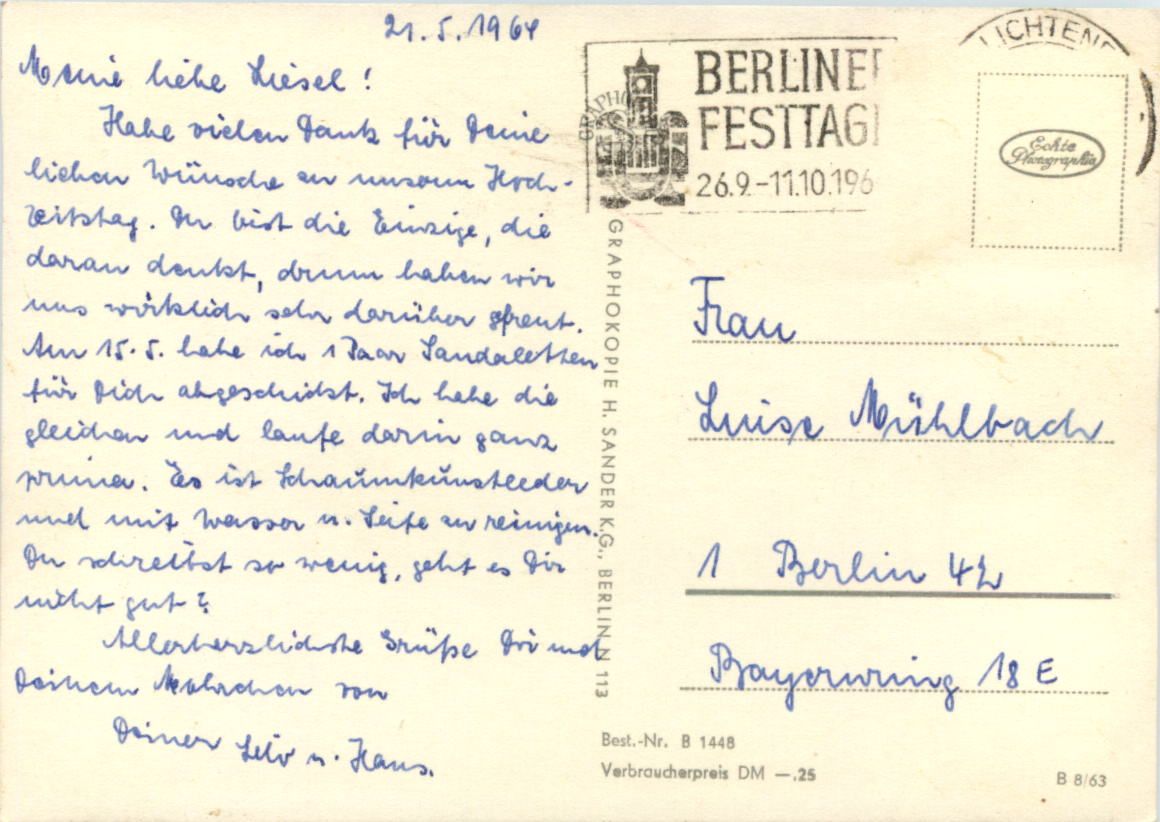 21.5.1964
Meine liebe Liesel!
Habe vielen Dank für Deine
lieben Wünsche zu unserem Hoch-
zeitstag. Du bist die Einzige, die
daran denkt, drum haben wir
uns wirklich sehr darüber gefreut.
Am 15.5. habe ich 1 Paar Sandaletten
für Dich abgeschickt. Ich habe die
gleichen und laufe darin ganz
prima. Es ist Schaumkunstleder
und mit Wasser u. Seife zu reinigen.
Du schreibst so wenig, geht es Dir
nicht gut?
Allerherzlichste Grüße Dir und
Deinem von
Deiner u. Hans.
BERLINE
FESTTAG
26.9.-11.10.196
LICHTEN
Echte
Photographie
GRAPHO
GRAPHOKOPIE H. SANDER K.G., BERLIN N 113
Frau
Luise Mühlbach
1 Berlin 42
Bayernring 18 E
Best.-Nr. B 1448
Verbraucherpreis DM —.25
B 8/63